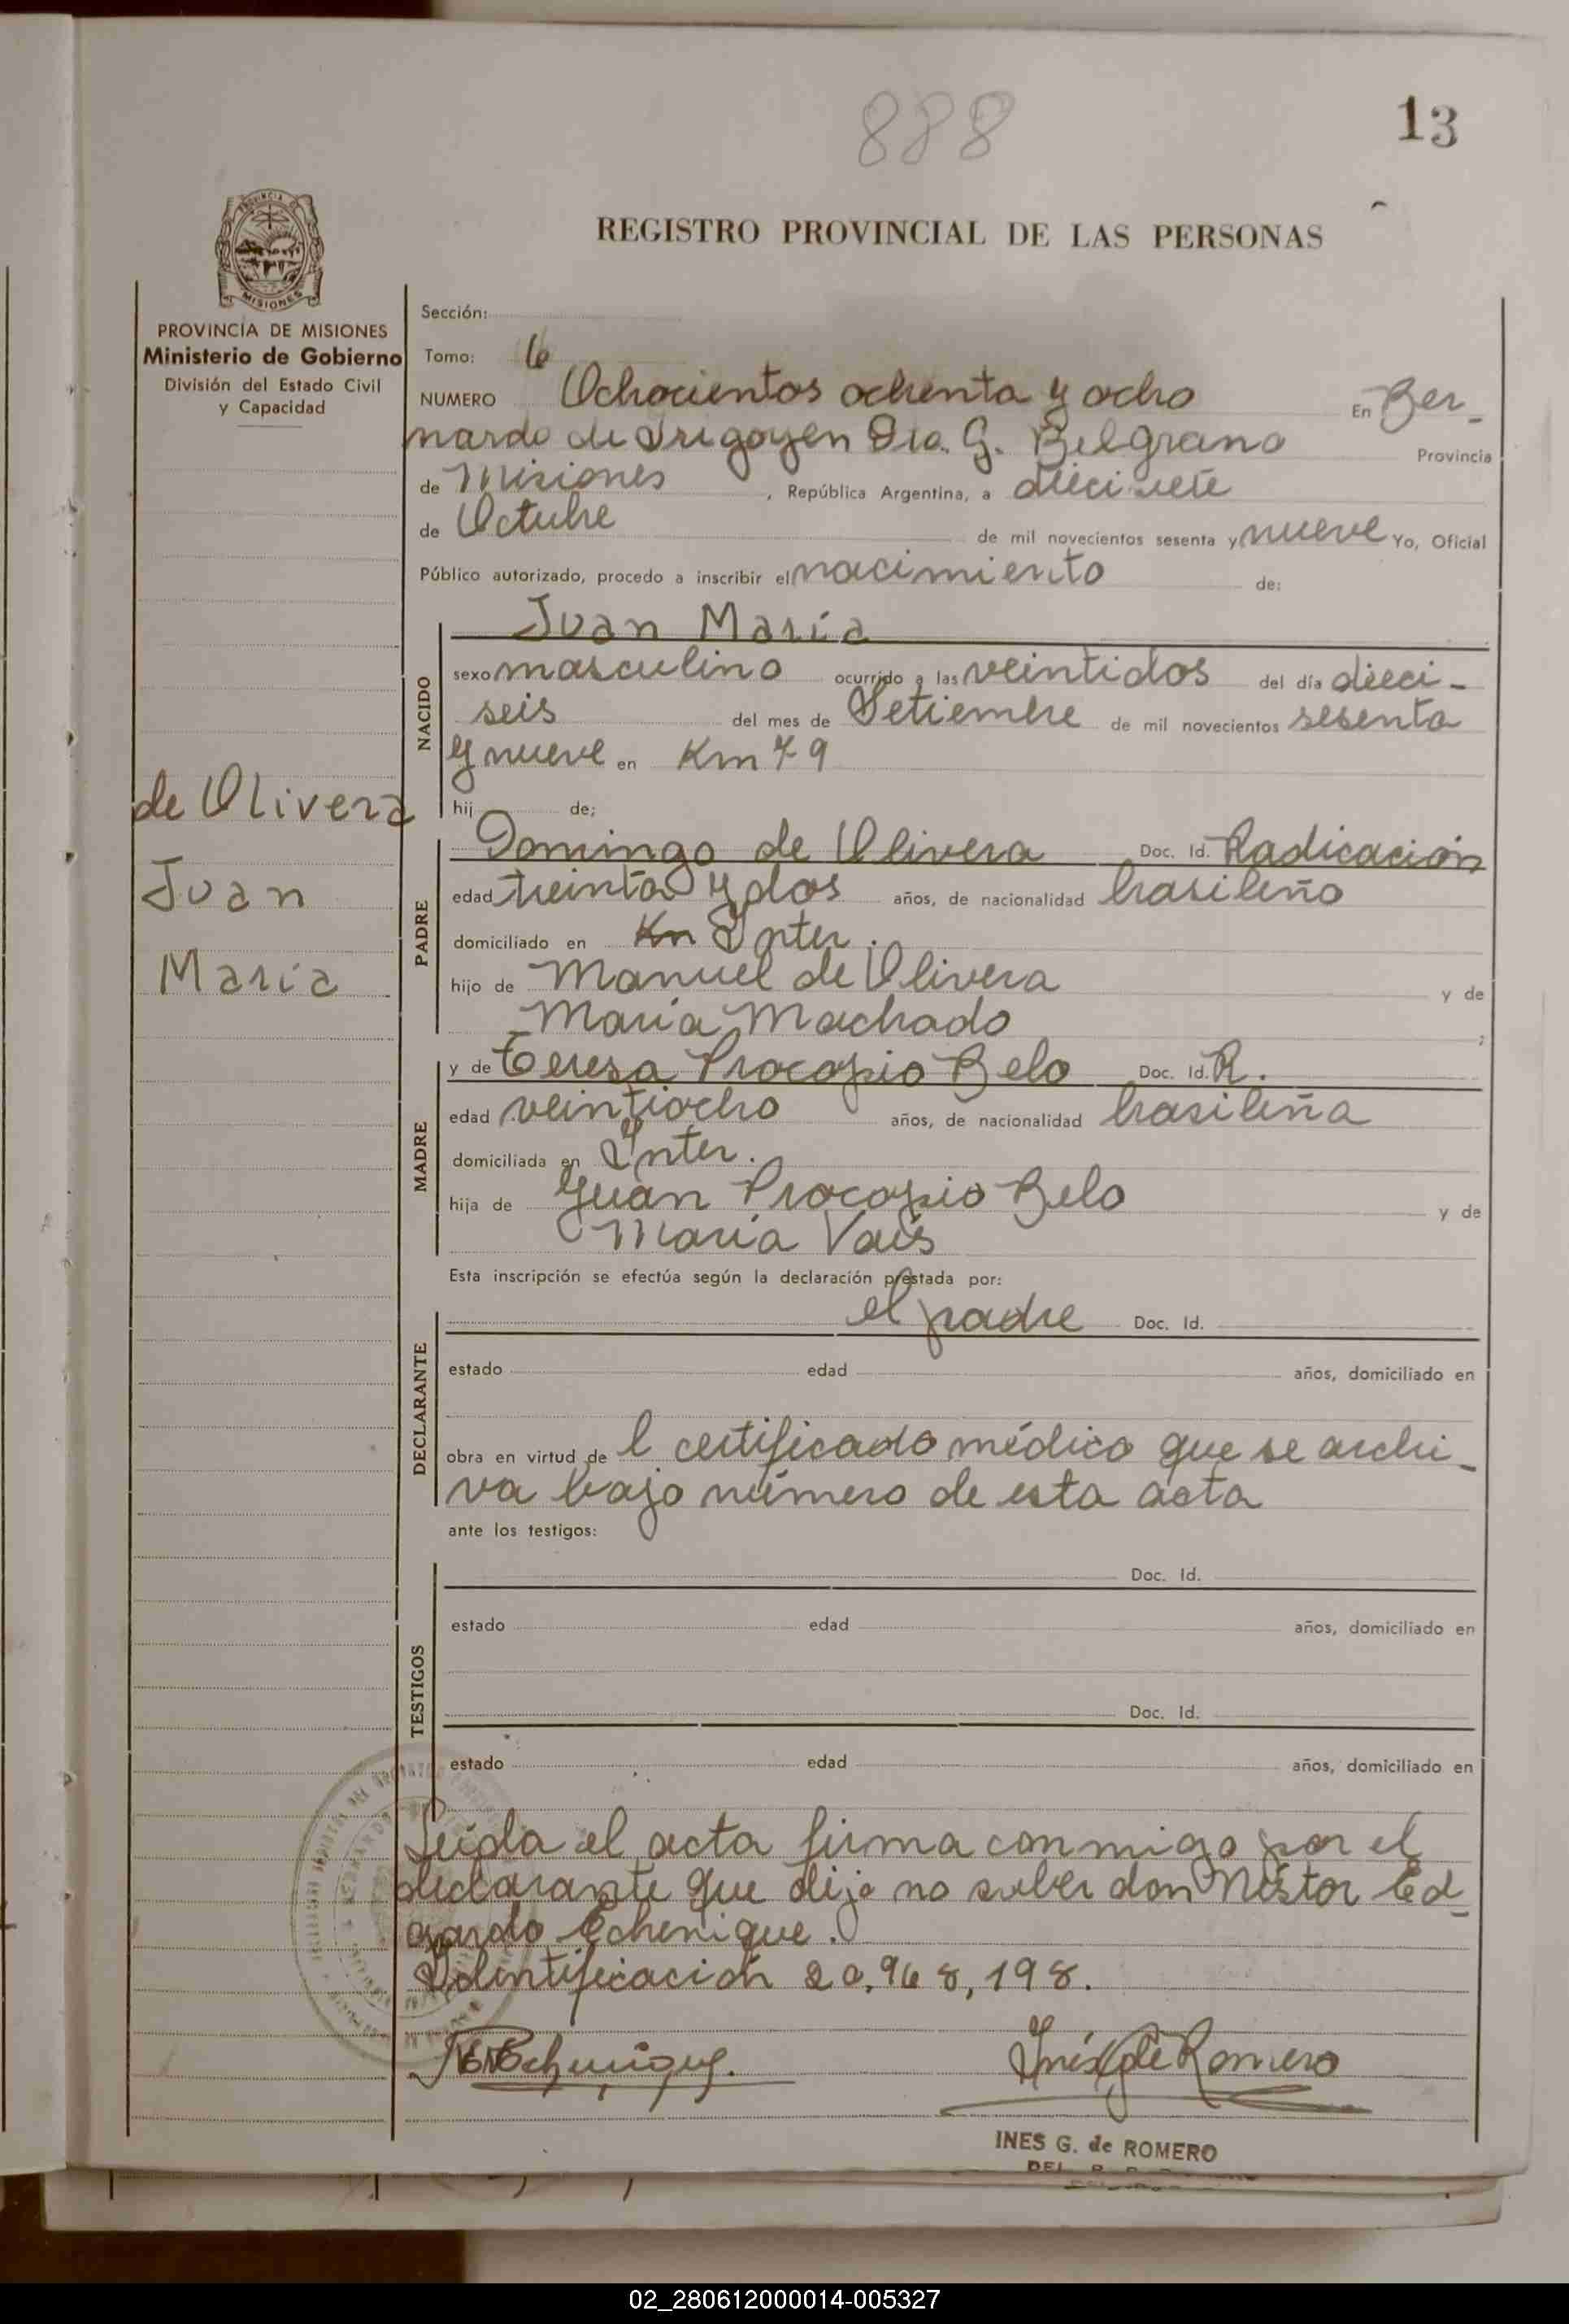 888
13
REGISTRO PROVINCIAL DE LAS PERSONAS
MISIONES
PROVINCIA DE MISIONES
Ministerio de Gobierno
División del Estado Civil
y Capacidad
Sección:
Tomo: 6
NUMERO Ochocientos ochenta y ocho En Ber-
nardo de Irigoyen Dto. G. Belgrano Provincia
de Misiones, República Argentina, a diecisiete
de Octubre de mil novecientos sesenta y nueve Yo, Oficial
Público autorizado, procedo a inscribir el nacimiento de:
Juan María
NACIDO
sexo masculino ocurrido a las veintidos del día dieci-
seis del mes de Setiembre de mil novecientos sesenta
y nueve en Km 79
hij de;
de Olivera
Juan
María
PADRE
Domingo de Olivera Doc. Id. Radicación
edad treinta y dos años, de nacionalidad brasileño
domiciliado en Km Inter.
hijo de Manuel de Olivera y de
María Machado ;
MADRE
y de Teresa Procopio Belo Doc. Id. R.
edad veintiocho años, de nacionalidad brasileña
domiciliada en Inter.
hija de Juan Procopio Belo y de
María Vais
Esta inscripción se efectúa según la declaración prestada por:
DECLARANTE
el padre Doc. Id.
estado edad años, domiciliado en
obra en virtud de l certificado médico que se archi-
va bajo número de esta acta
ante los testigos:
TESTIGOS
Doc. Id.
estado edad años, domiciliado en
Doc. Id.
estado edad años, domiciliado en
Leída el acta firma conmigo por el
declarante que dijo no saber don Néstor Ed-
gardo Echenique.
Identificación 20,968,198.
Inés G de Romero
INES G. de ROMERO
02_280612000014-005327